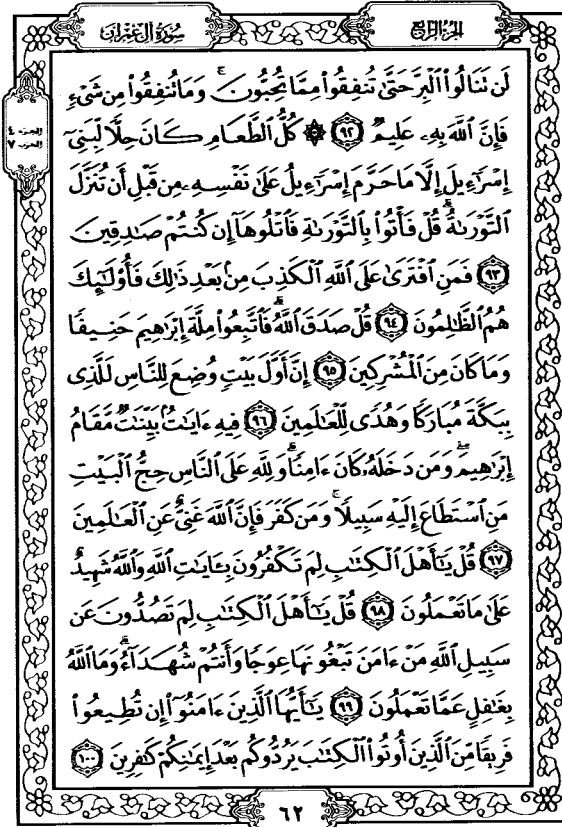 سُورَةُ آلِ عِمْرَانَ
الجزء الرابع
الجزء ٤
الحزب ٧
لَن تَنَالُوا۟ ٱلْبِرَّ حَتَّىٰ تُنفِقُوا۟ مِمَّا تُحِبُّونَ ۚ وَمَا تُنفِقُوا۟ مِن شَىْءٍ
فَإِنَّ ٱللَّهَ بِهِۦ عَلِيمٌ ﴿٩٢﴾ ۞ كُلُّ ٱلطَّعَامِ كَانَ حِلًّا لِّبَنِىٓ
إِسْرَٰٓءِيلَ إِلَّا مَا حَرَّمَ إِسْرَٰٓءِيلُ عَلَىٰ نَفْسِهِۦ مِن قَبْلِ أَن تُنَزَّلَ
ٱلتَّوْرَىٰةُ ۗ قُلْ فَأْتُوا۟ بِٱلتَّوْرَىٰةِ فَٱتْلُوهَآ إِن كُنتُمْ صَٰدِقِينَ
﴿٩٣﴾ فَمَنِ ٱفْتَرَىٰ عَلَى ٱللَّهِ ٱلْكَذِبَ مِنۢ بَعْدِ ذَٰلِكَ فَأُو۟لَٰٓئِكَ
هُمُ ٱلظَّٰلِمُونَ ﴿٩٤﴾ قُلْ صَدَقَ ٱللَّهُ ۗ فَٱتَّبِعُوا۟ مِلَّةَ إِبْرَٰهِيمَ حَنِيفًا
وَمَا كَانَ مِنَ ٱلْمُشْرِكِينَ ﴿٩٥﴾ إِنَّ أَوَّلَ بَيْتٍ وُضِعَ لِلنَّاسِ لَلَّذِى
بِبَكَّةَ مُبَارَكًا وَهُدًى لِّلْعَٰلَمِينَ ﴿٩٦﴾ فِيهِ ءَايَٰتٌۢ بَيِّنَٰتٌ مَّقَامُ
إِبْرَٰهِيمَ ۖ وَمَن دَخَلَهُۥ كَانَ ءَامِنًا ۗ وَلِلَّهِ عَلَى ٱلنَّاسِ حِجُّ ٱلْبَيْتِ
مَنِ ٱسْتَطَاعَ إِلَيْهِ سَبِيلًا ۚ وَمَن كَفَرَ فَإِنَّ ٱللَّهَ غَنِىٌّ عَنِ ٱلْعَٰلَمِينَ
﴿٩٧﴾ قُلْ يَٰٓأَهْلَ ٱلْكِتَٰبِ لِمَ تَكْفُرُونَ بِـَٔايَٰتِ ٱللَّهِ وَٱللَّهُ شَهِيدٌ
عَلَىٰ مَا تَعْمَلُونَ ﴿٩٨﴾ قُلْ يَٰٓأَهْلَ ٱلْكِتَٰبِ لِمَ تَصُدُّونَ عَن
سَبِيلِ ٱللَّهِ مَنْ ءَامَنَ تَبْغُونَهَا عِوَجًا وَأَنتُمْ شُهَدَآءُ ۗ وَمَا ٱللَّهُ
بِغَٰفِلٍ عَمَّا تَعْمَلُونَ ﴿٩٩﴾ يَٰٓأَيُّهَا ٱلَّذِينَ ءَامَنُوٓا۟ إِن تُطِيعُوا۟
فَرِيقًا مِّنَ ٱلَّذِينَ أُوتُوا۟ ٱلْكِتَٰبَ يَرُدُّوكُم بَعْدَ إِيمَٰنِكُمْ كَٰفِرِينَ ﴿١٠٠﴾
٦٢